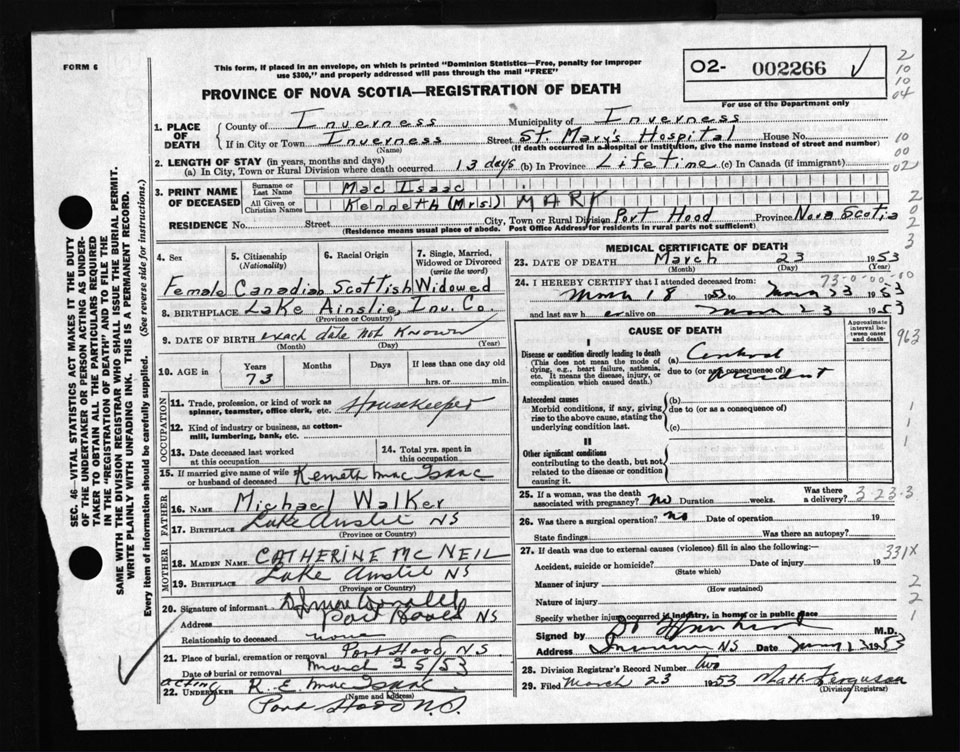 FORM 6
This form, if placed in an envelope, on which is printed "Dominion Statistics—Free, penalty for improper
use $300," and properly addressed will pass through the mail "FREE"
O2- 002266 ✓
For use of the Department only
PROVINCE OF NOVA SCOTIA—REGISTRATION OF DEATH
2
10
10
04
1. PLACE OF DEATH
County of Inverness Municipality of Inverness
If in City or Town Inverness Street St. Mary's Hospital House No.
(Name) (If death occurred in a Hospital or Institution, give the name instead of street and number)
10
00
02
2. LENGTH OF STAY (in years, months and days)
(a) In City, Town or Rural Division where death occurred 13 days (b) In Province Lifetime (c) In Canada (if immigrant)
3. PRINT NAME OF DECEASED
Surname or Last Name Mac Isaac
All Given or Christian Names Kenneth (Mrs.) MARY
RESIDENCE No. Street City, Town or Rural Division Port Hood Province Nova Scotia
(Residence means usual place of abode. Post Office Address for residents in rural parts not sufficient)
2
0
2
3
4. Sex
Female
5. Citizenship (Nationality)
Canadian
6. Racial Origin
Scottish
7. Single, Married, Widowed or Divorced (write the word)
Widowed
8. BIRTHPLACE Lake Ainslie, Inv. Co.
(Province or Country)
9. DATE OF BIRTH exact date not known
(Month) (Day) (Year)
10. AGE in Years 73 Months Days If less than one day old hrs. or min.
OCCUPATION
11. Trade, profession, or kind of work as spinner, teamster, office clerk, etc. Housekeeper
12. Kind of industry or business, as cotton-mill, lumbering, bank, etc.
13. Date deceased last worked at this occupation
14. Total yrs. spent in this occupation
15. If married give name of wife or husband of deceased Kenneth Mac Isaac
FATHER
16. NAME Michael Walker
17. BIRTHPLACE Lake Ainslie NS
(Province or Country)
MOTHER
18. MAIDEN NAME CATHERINE McNEIL
19. BIRTHPLACE Lake Ainslie NS
(Province or Country)
20. Signature of informant
Address Port Hood NS
Relationship to deceased none
21. Place of burial, cremation or removal Port Hood, NS
Date of burial or removal March 25/53
acting
22. UNDERTAKER R. E. Mac Isaac
(Name and address)
Port Hood N.S.
MEDICAL CERTIFICATE OF DEATH
23. DATE OF DEATH March 23 1953
(Month) (Day) (Year)
73-0-00-00
24. I HEREBY CERTIFY that I attended deceased from
March 18 1953 to March 23 1953
and last saw h er alive on March 23 1953
CAUSE OF DEATH
Approximate interval between onset and death
963
I
Disease or condition directly leading to death (a) Cerebral
(This does not mean the mode of dying, e.g., heart failure, asthenia, etc. It means the disease, injury, or complication which caused death.)
due to (or as consequence of) Accident
Antecedent causes
Morbid conditions, if any, giving rise to the above cause, stating the underlying condition last.
(b)
due to (or as a consequence of)
(c)
1
1
1
II
Other significant conditions
contributing to the death, but not related to the disease or condition causing it.
25. If a woman, was the death associated with pregnancy? no Duration weeks. Was there a delivery?
3-23-3
26. Was there a surgical operation? no Date of operation 19
State findings Was there an autopsy?
27. If death was due to external causes (violence) fill in also the following:—
331X
Accident, suicide or homicide? Date of injury 19
(State which)
Manner of injury
(How sustained)
2
Nature of injury
2
Specify whether injury occurred in industry, in home or in public place
1
Signed by M.D.
Address Inverness NS Date 1953
28. Division Registrar's Record Number two
29. Filed March 23 1953 Matt. Ferguson
(Division Registrar)
SEC. 46 - VITAL STATISTICS ACT MAKES IT THE DUTY
OF THE UNDERTAKER OR PERSON ACTING AS UNDER-
TAKER TO OBTAIN ALL THE PARTICULARS REQUIRED
IN THE "REGISTRATION OF DEATH" AND TO FILE THE
SAME WITH THE DIVISION REGISTRAR WHO SHALL ISSUE THE BURIAL PERMIT.
WRITE PLAINLY WITH UNFADING INK. THIS IS A PERMANENT RECORD.
Every item of information should be carefully supplied. (See reverse side for instructions.)